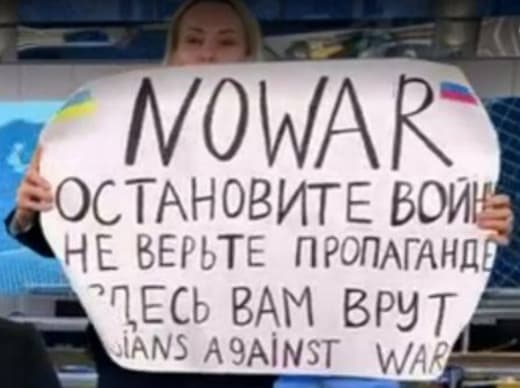 NO WAR
ОСТАНОВИТЕ ВОЙН
НЕ ВЕРЬТЕ ПРОПАГАНДЕ
ЗДЕСЬ ВАМ ВРУТ
SIANS AGAINST WAR